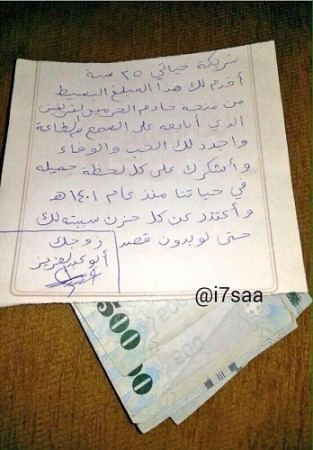 شريكة حياتي ٣٥ سنة
أقدم لك هذا المبلغ البسيط
من منحه خادم الحرمين الشريفين
الذي أبايعه على السمع والطاعة
واجدد لك الحب والوفاء
وأشكرك على كل لحظة جميله
في حياتنا منذ عام ١٤٠١هـ
وأعتذر عن كل حزن سببته لك
حتى لو بدون قصد
زوجك
أبو عبدالعزيز
@i7saa
500
00